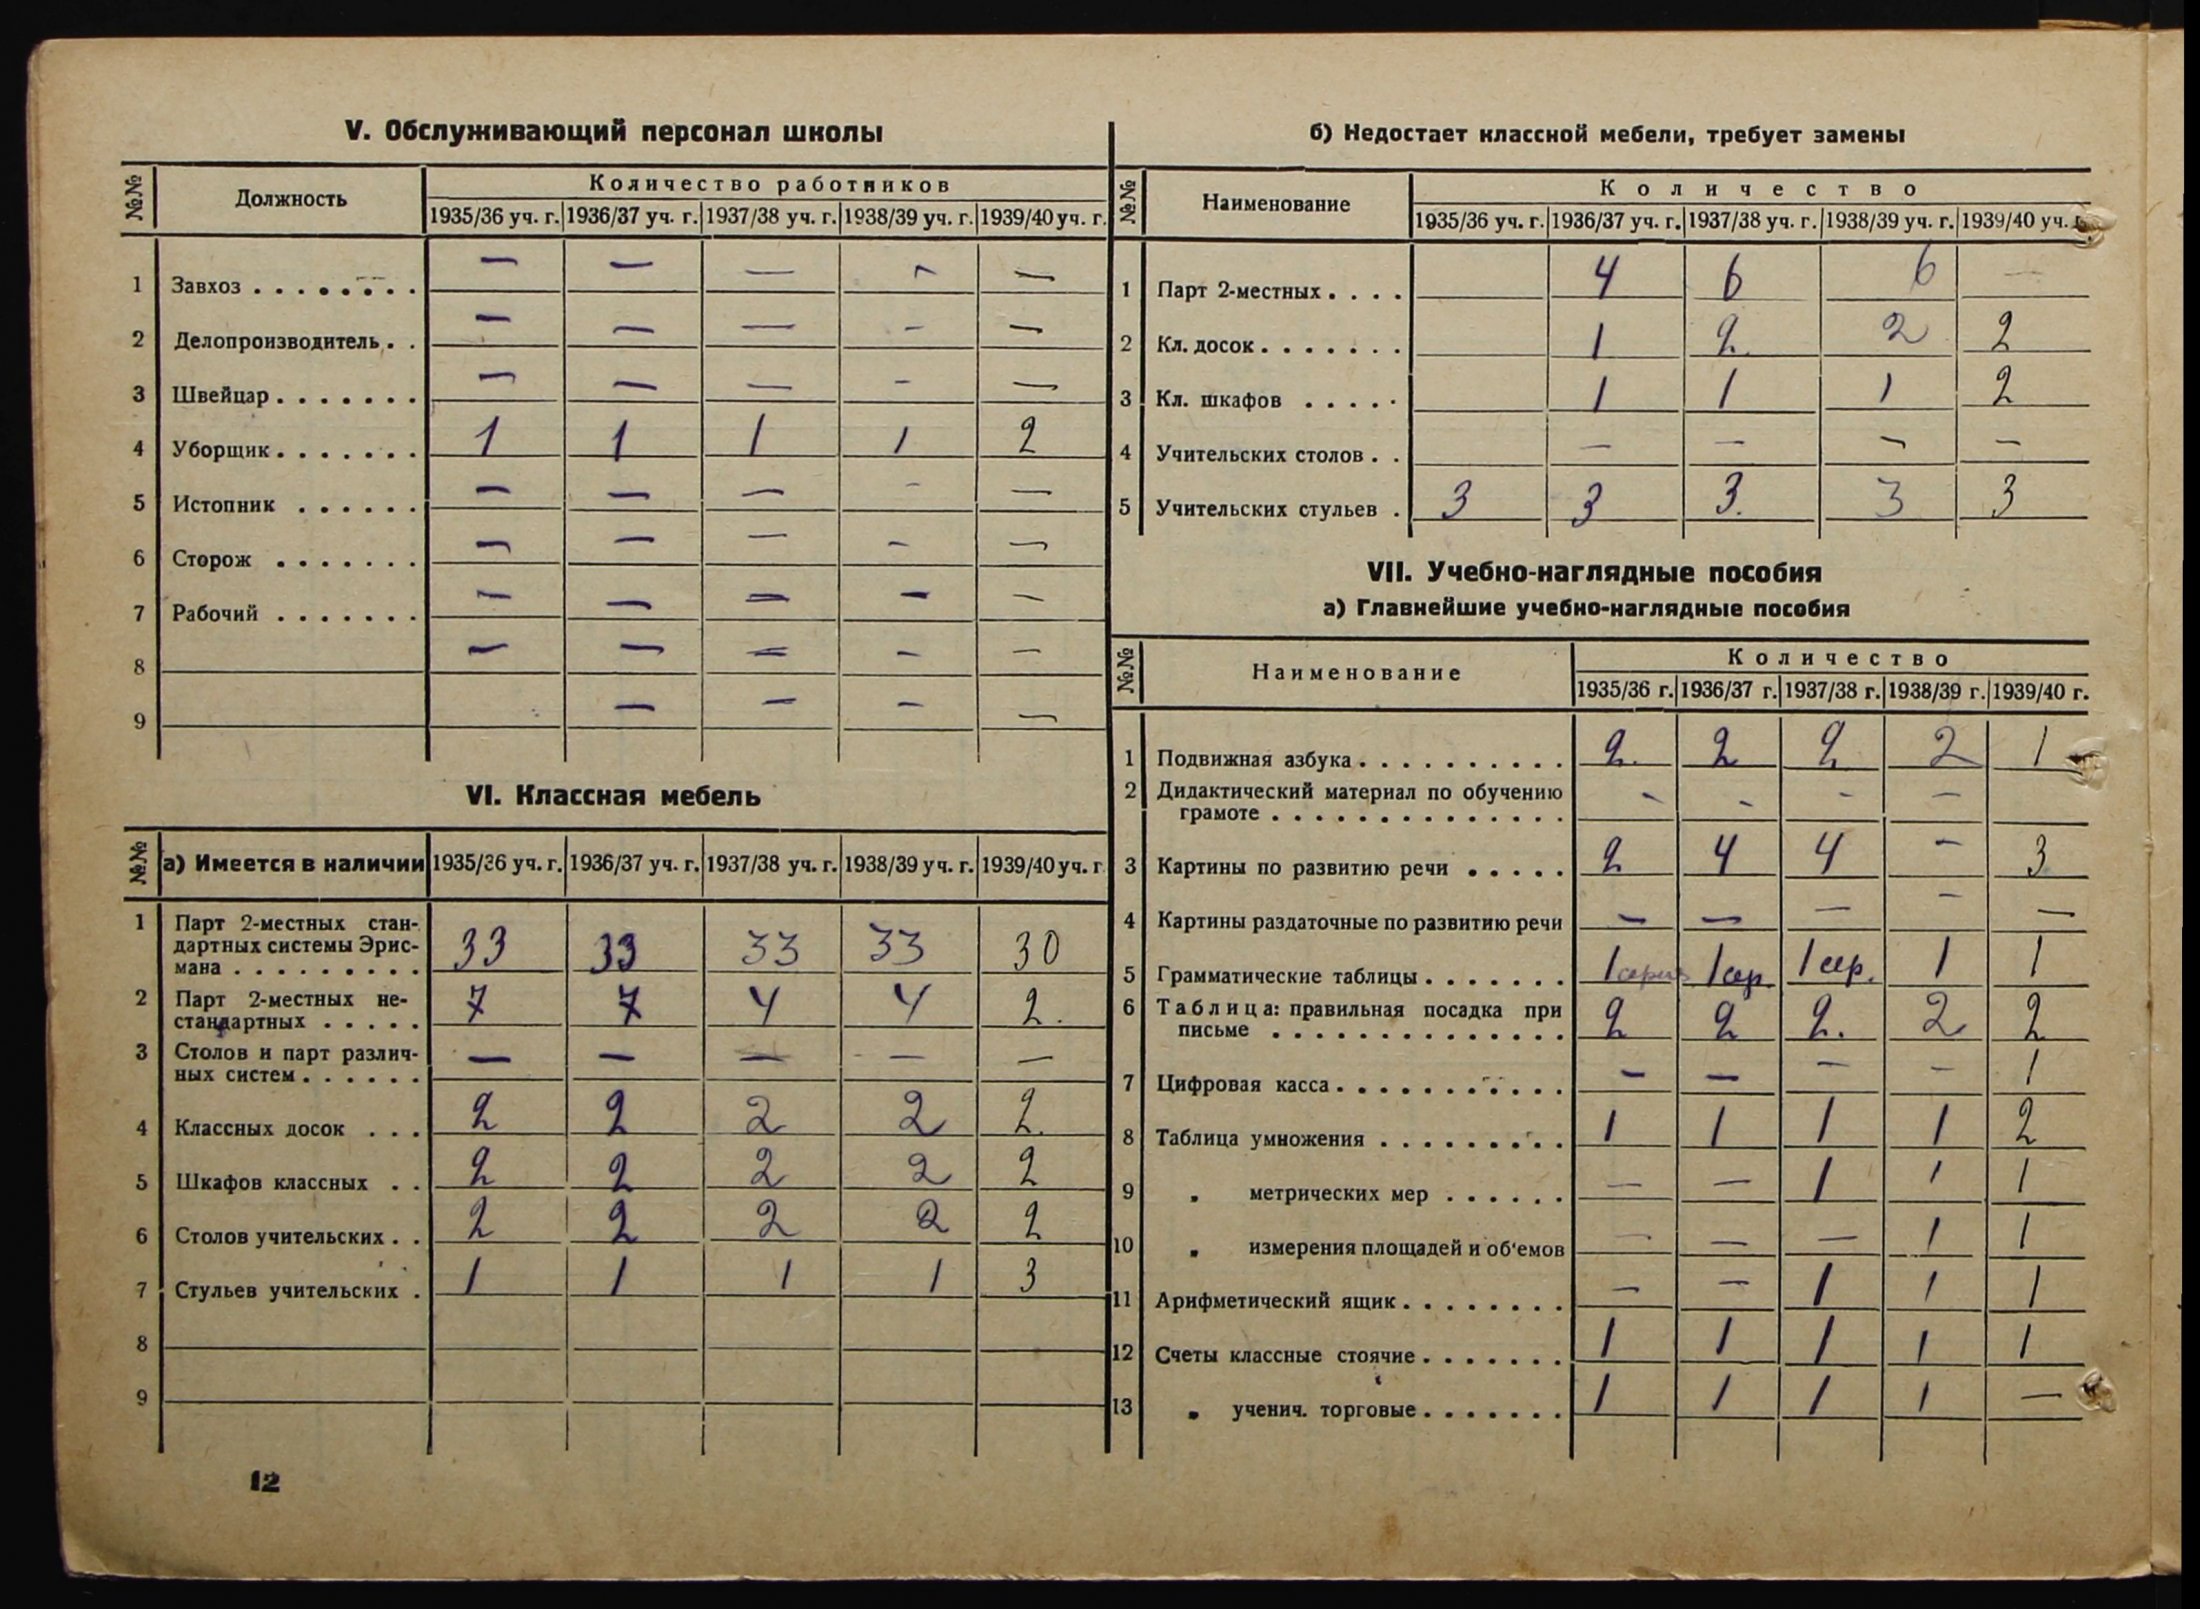 V. Обслуживающий персонал школы
№№ Должность Количество работников
1935/36 уч. г. 1936/37 уч. г. 1937/38 уч. г. 1938/39 уч. г. 1939/40 уч. г.
1 Завхоз . . . . . . . . — — — — —
2 Делопроизводитель . . — — — — —
3 Швейцар . . . . . . . — — — — —
4 Уборщик . . . . . . . 1 1 1 1 2
5 Истопник . . . . . . — — — — —
6 Сторож . . . . . . . — — — — —
7 Рабочий . . . . . . . — — — — —
8 — — — — —
9 — — — —
VI. Классная мебель
№№ а) Имеется в наличии 1935/36 уч. г. 1936/37 уч. г. 1937/38 уч. г. 1938/39 уч. г. 1939/40 уч. г
1 Парт 2-местных стан-
дартных системы Эрис-
мана . . . . . . . . . 33 33 33 33 30
2 Парт 2-местных не-
стандартных . . . . . 7 7 4 4 2.
3 Столов и парт различ-
ных систем . . . . . . — — — — —
4 Классных досок . . . 2 2 2 2 2.
5 Шкафов классных . . 2 2 2 2 2
6 Столов учительских . . 2 2 2 2 2
7 Стульев учительских . 1 1 1 1 3
8
9
12
б) Недостает классной мебели, требует замены
№№ Наименование Количество
1935/36 уч. г. 1936/37 уч. г. 1937/38 уч. г. 1938/39 уч. г. 1939/40 уч. г.
1 Парт 2-местных . . . . 4 6 6 —
2 Кл. досок . . . . . . . 1 2. 2 2
3 Кл. шкафов . . . . . 1 1 1 2
4 Учительских столов . . — — — —
5 Учительских стульев . 3 3 3. 3 3
VII. Учебно-наглядные пособия
а) Главнейшие учебно-наглядные пособия
№№ Наименование Количество
1935/36 г. 1936/37 г. 1937/38 г. 1938/39 г. 1939/40 г.
1 Подвижная азбука . . . . . . . . . . 2. 2 2 2 1
2 Дидактический материал по обучению
грамоте . . . . . . . . . . . . . . — — — —
3 Картины по развитию речи . . . . . 2 4 4 — 3
4 Картины раздаточные по развитию речи — — — — —
5 Грамматические таблицы . . . . . . . 1 серия 1 сер. 1 сер. 1 1
6 Таблица: правильная посадка при
письме . . . . . . . . . . . . . . 2 2 2. 2 2
7 Цифровая касса . . . . . . . . . . . — — — — 1
8 Таблица умножения . . . . . . . . . 1 1 1 1 2
9 „ метрических мер . . . . . . — — 1 1 1
10 „ измерения площадей и об‘емов — — — 1 1
11 Арифметический ящик . . . . . . . . — — 1 1 1
12 Счеты классные стоячие . . . . . . . 1 1 1 1 1
13 „ученич. торговые . . . . . . . 1 1 1 1 —